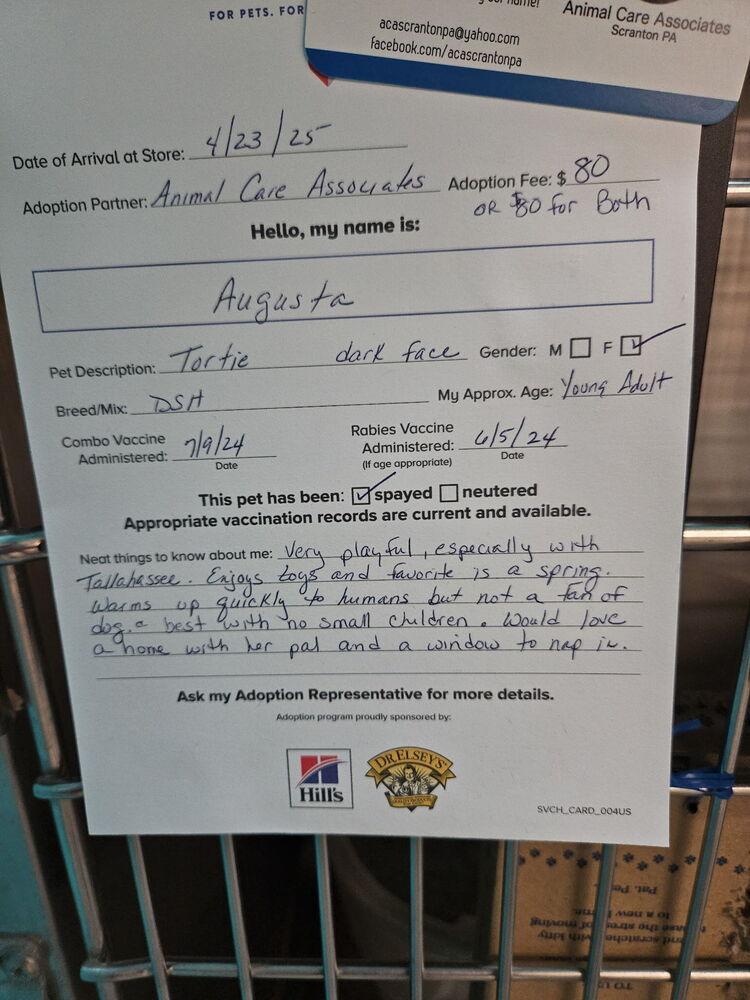 FOR PETS. FOR
Animal Care Associates
Scranton PA
acascrantonpa@yahoo.com
facebook.com/acascrantonpa
Date of Arrival at Store: 4/23/25
Adoption Partner: Animal Care Associates Adoption Fee: $ 80
OR $80 for Both
Hello, my name is:
Augusta
Pet Description: Tortie dark face Gender: M F
Breed/Mix: DSH My Approx. Age: Young Adult
Combo Vaccine Administered: 7/9/24
Date
Rabies Vaccine Administered: 6/5/24
(If age appropriate)
Date
This pet has been: spayed neutered
Appropriate vaccination records are current and available.
Neat things to know about me: Very playful, especially with
Tallahassee. Enjoys toys and favorite is a spring.
Warms up quickly to humans but not a fan of
dog. best with no small children. Would love
a home with her pal and a window to nap in.
Ask my Adoption Representative for more details.
Adoption program proudly sponsored by:
Hill's
DR ELSEY'S
SVCH_CARD_004US